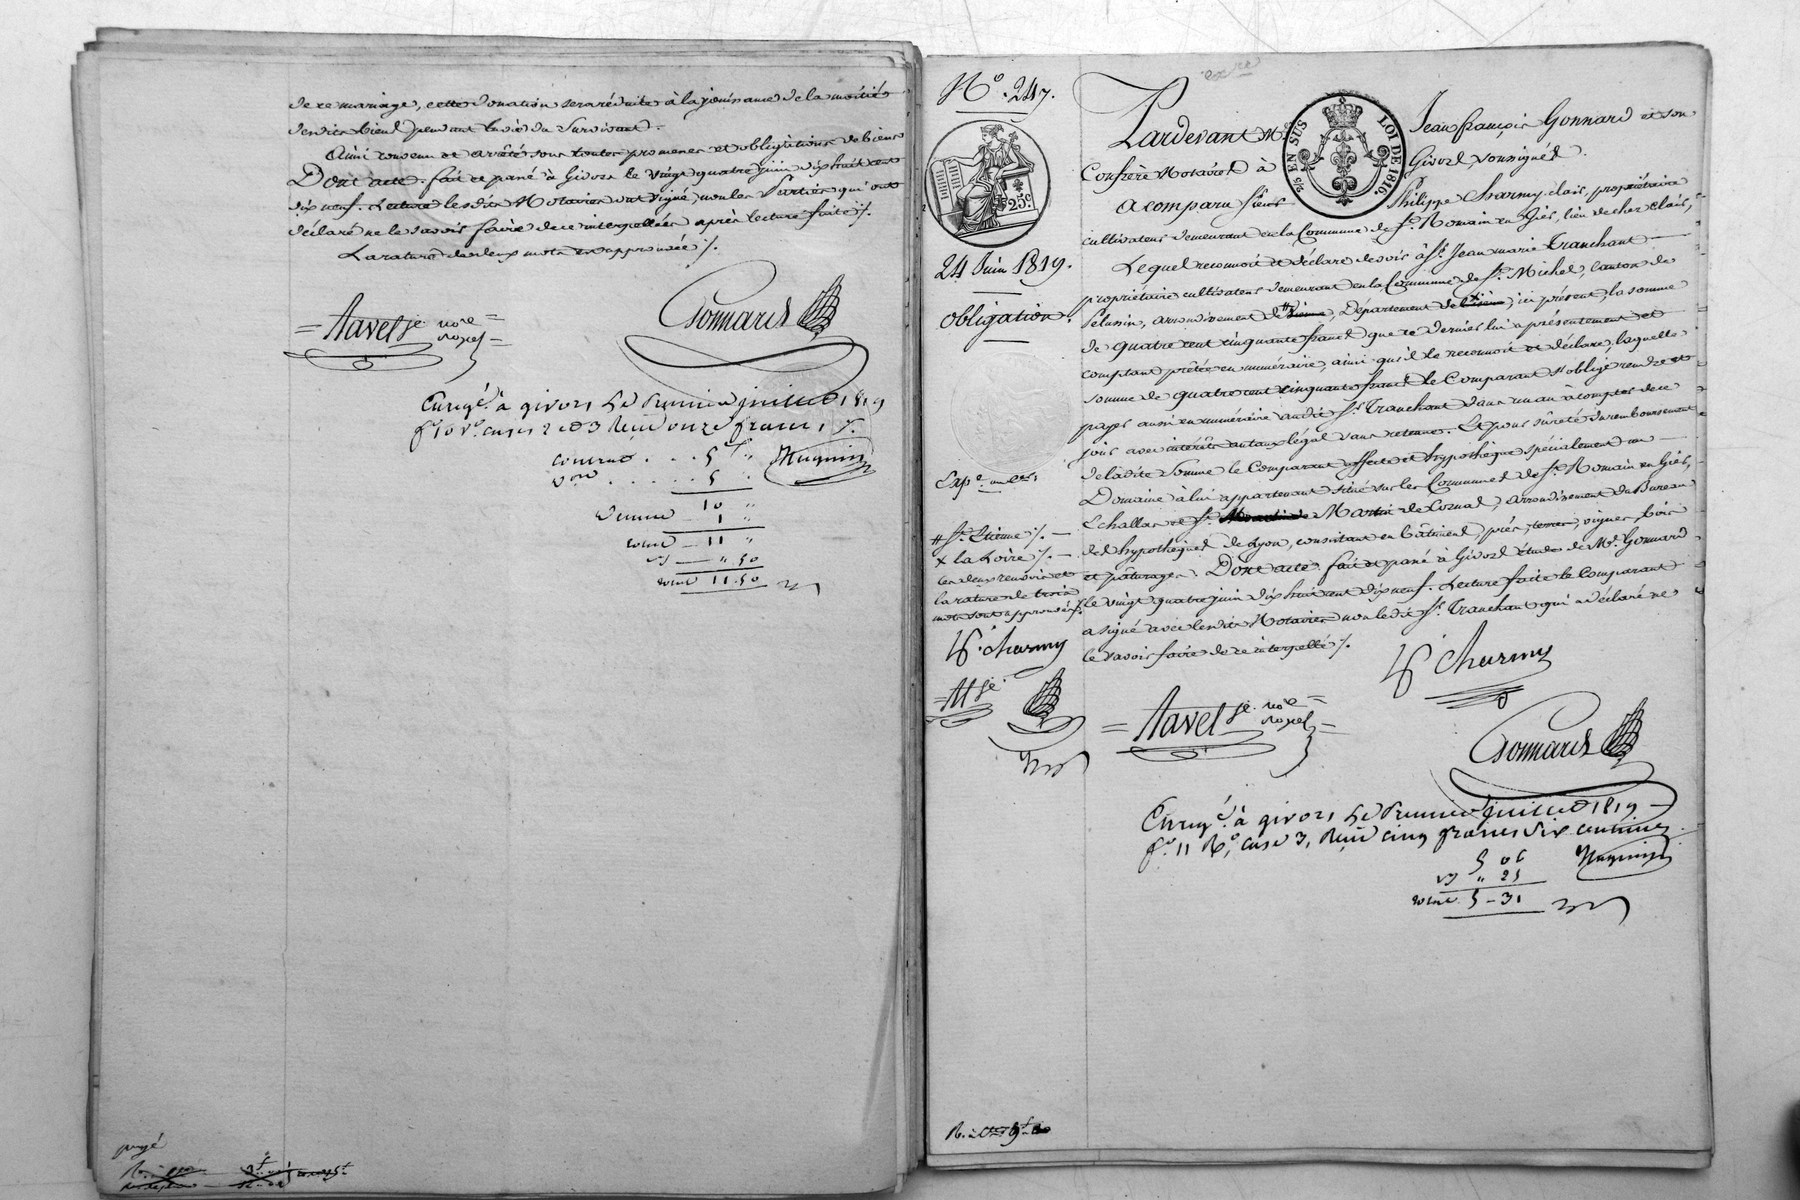 de re mariage, cette donation sera réduite à la jouissance de la moitié
desdits biens pendant la vie du Survivant.
Ainsi convenu et arrêté sous toutes promesses et obligations de biens
Dont acte. fait et passé à Givors le vingt quatre juin dix huit cent
dix neuf. Lecture lesdits Notaires ont signé, non les Parties qui ont
déclaré ne le savoir faire de ce interpellées après lecture faite %.
La rature de deux mots est approuvée %.
= Havet je nore =
Gonnard
Enregé. à givors le Premier juillet 1819
fo. 10 vo. cases 2 et 3 Reçu onze francs %.
contrat . . . 5 "
don . . . . . 5 "
10 "
1 "
total — 11 "
— 1. 10
total 11.50
payé
No. 247.
Pardevant Me. Jean françois Gonnard et son
Confrère Notaires à Givors, soussignés.
A comparu sieur Philippe Charmy clais, propriétaire
cultivateur demeurant en la Commune de St. Romain en Giès, lieu de chez Clais,
25c.
EN SUS
LOI DE 1816.
24 Juin 1819.
Obligation.
Lequel reconnoit et déclare devoir à Sr. Jean marie Tranchant
propriétaire cultivateur demeurant en la Commune de St. Michel, Canton de
Pelussin, arrondissement de # Vienne, Département de x l'isère, ici présent, la somme
de quatre cent cinquante francs que ce dernier lui a présentement et
comptant prêtée en numéraire, ainsi qu'il le reconnoit et déclare, laquelle
somme de quatre cent cinquante francs le Comparant s'oblige rendre et
payer aussi en numéraire audit Sr. Tranchant dans un an à compter de ce
jour avec intérêts au taux légal sans retenue. Et pour sûreté du remboursement
de ladite Somme le Comparant affecte et hypothèque spécialement un
Domaine à lui appartenant situé sur les Communes de St. Romain en Giès,
Echallas et St. Martin de Cornas, arrondissement du Bureau
des hypothèques de Lyon, consistant en bâtiment, prés, terres, vignes, bois
et pâturages. Dont acte. fait et passé à Givors Etude de Me. Gonnard
le vingt quatre juin dix huit cent dix neuf. Lecture faite le Comparant
a signé avec lesdits Notaires non ledit Sr. Tranchant qui a déclaré ne
le savoir faire de ce interpellé %.
# St. Etienne %.
x la Loire %.
les deux renvois et
la rature de trois
mots sont approuvés %.
Ph. Charmy
Ph. Charmy
= Havet je nore =
Gonnard
Enregé. à givors le Premier juillet 1819
fo. 11 Ro. case 3, Reçu cinq francs six centimes
5 06
" 25
total 5 - 31